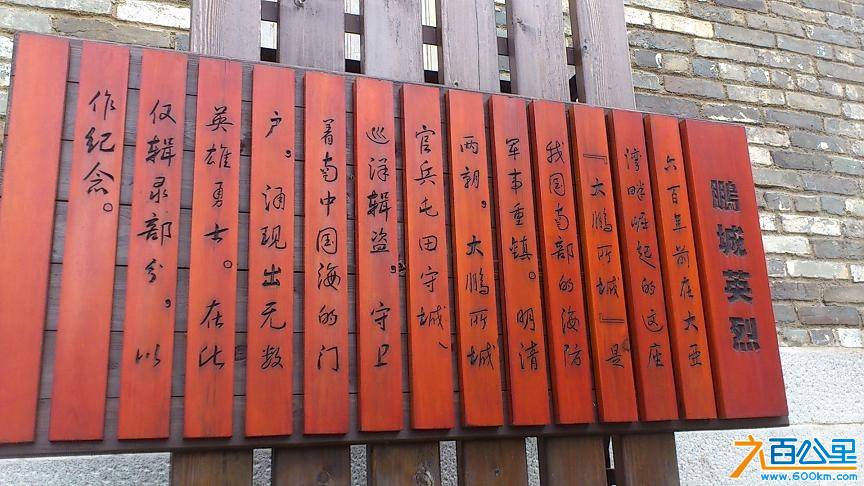 鹏城英烈
六百年前在大亚
湾畔崛起的这座
『大鹏所城』是
我国南部的海防
军事重镇。明清
两朝。大鹏所城
官兵屯田守城、
巡洋辑盗。守卫
着南中国海的门
户。涌现出无数
英雄勇士。在此
仅辑录部分。以
作纪念。
六百公里
www.600km.com